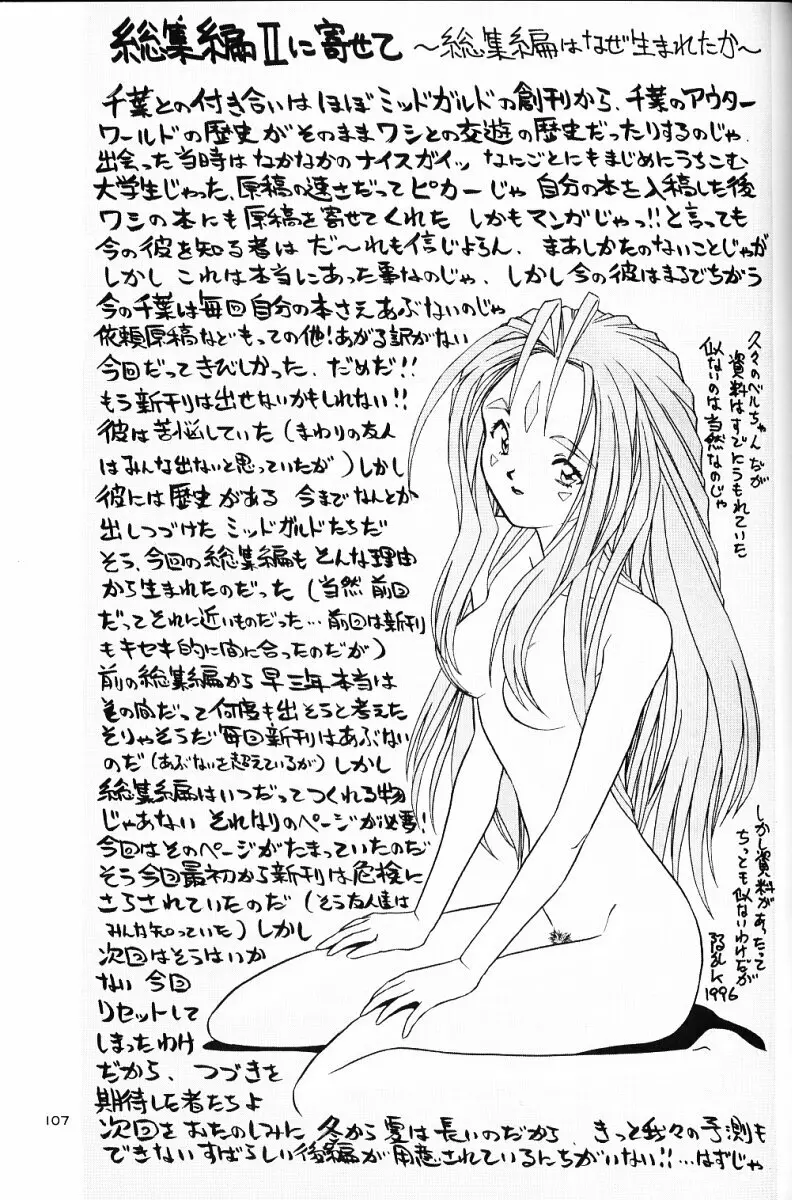 総集編Ⅱに寄せて ～総集編はなぜ生まれたか～
千葉との付き合いはほぼミッドガルドの創刊から、千葉のアウター
ワールドの歴史がそのままワシとの交遊の歴史だったりするのじゃ.
出会った当時はなかなかのナイスガイッ なにごとにもまじめにうちこむ
大学生じゃった、原稿の速さだってピカーじゃ 自分の本を入稿した後
ワシの本にも原稿を寄せてくれた しかもマンガじゃっ!!と言っても
今の彼を知る者は だ～れも信じよろん、まあしかたのないことじゃが
しかし これは本当にあった事なのじゃ、しかし今の彼はまるでちがう
今の千葉は毎回自分の本さえあぶないのじゃ
依頼原稿などもっての他!あがる訳がない
今回だってきびしかった、だめだ!!
もう新刊は出せないかもしれない!!
彼は苦悩していた(まわりの友人
はみんな出ないと思っていたが)しかし
彼には歴史がある 今までなんとか
出しつづけた ミッドガルドたちだ
そう、今回の総集編も そんな理由
から生まれたのだった(当然前回
だってそれに近いものだった…前回は新刊
もキセキ的に間に合ったのだが)
前の総集編から早三年本当は
その間だって何度も出そうと考えた
そりゃそうだ毎回新刊はあぶない
のだ(あぶないを超えているが)しかし
総集編はいつだってつくれる物
じゃあない それなりのページが必要!
今回はそのページがたまっていたのだ
そう今回最初から新刊は危険に
さらされていたのだ(そう友人達は
みんな知っていた)しかし
次回はそうはいか
ない 今回
リセットして
しまったわけ
だから、つづきを
期待した者たちよ
次回をおたのしみに 冬から夏は長いのだから、きっと我々の予測も
できないすばらしい後編が用意されているにちがいない!!…はずじゃ
久々のベルちゃんだが
資料はすでにうもれていた
似ないのは当然なのじゃ
しかし資料があったって
ちっとも似ないわけだが
1996
107